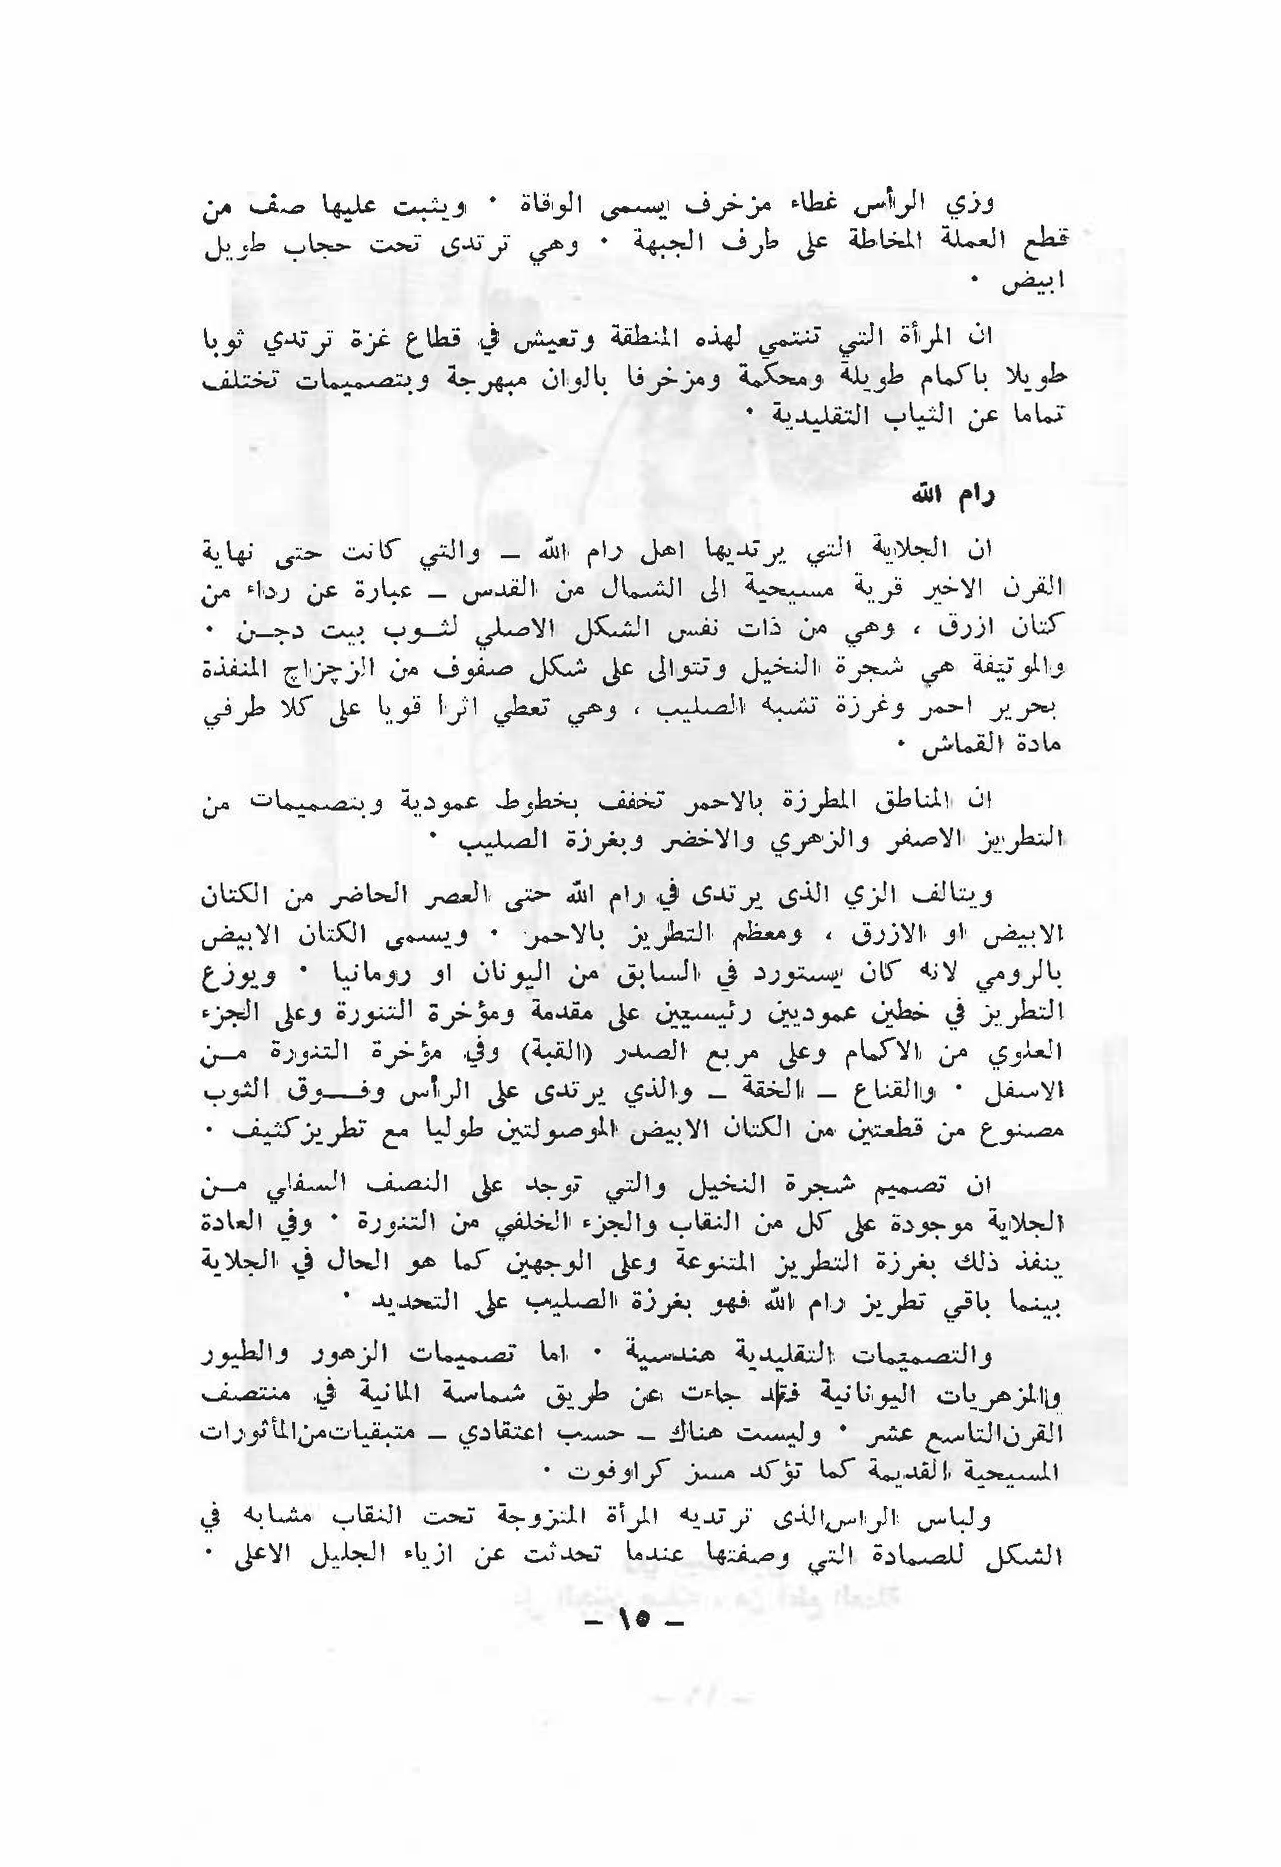 وزي الرأس غطاء مزخرف يسمى الوقاة · ويثبت عليها صف من
قطع العملة المخاطة على طرف الجبهة · وهي ترتدى تحت حجاب طويل
ابيض ·
ان المرأة التي تنتمي لهذه المنطقة وتعيش في قطاع غزة ترتدي ثوبا
طويلا باكمام طويلة ومحكمة ومزخرفا بالوان مبهرجة وبتصميمات تختلف
تماما عن الثياب التقليدية ·
رام الله
ان الجلاية التي يرتديها اهل رام الله – والتي كانت حتى نهاية
القرن الاخير قرية مسيحية الى الشمال من القدس – عبارة عن رداء من
كتان ازرق ، وهي من ذات نفس الشكل الاصلي لثوب بيت دجن ·
والموتيفة هي شجرة النخيل وتتوالى على شكل صفوف من الزجزاج المنفذة
بحرير احمر وغرزة تشبه الصليب ، وهي تعطي اثرا قويا على كلا طرفي
مادة القماش ·
ان المناطق المطرزة بالاحمر تخفف بخطوط عمودية وبتصميمات من
التطريز الاصفر والزهري والاخضر وبغرزة الصليب ·
ويتالف الزي الذى يرتدى في رام الله حتى العصر الحاضر من الكتان
الابيض او الازرق ، ومعظم التطريز بالاحمر · ويسمى الكتان الابيض
بالرومي لانه كان يستورد في السابق من اليونان او رومانيا · ويوزع
التطريز في خطين عموديين رئيسيين على مقدمة ومؤخرة التنورة وعلى الجزء
العلوي من الاكمام وعلى مربع الصدر (القبة) وفي مؤخرة التنورة من
الاسفل · والقناع – الخقة – والذي يرتدى على الرأس وفوق الثوب
مصنوع من قطعتين من الكتان الابيض الموصولتين طوليا مع تطريز كثيف ·
ان تصميم شجرة النخيل والتي توجد على النصف السفلي من
الجلاية موجودة على كل من النقاب والجزء الخلفي من التنورة · وفي العادة
ينفذ ذلك بغرزة التطريز المتنوعة وعلى الوجهين كما هو الحال في الجلاية
بينما باقي تطريز رام الله فهو بغرزة الصليب على التحديد ·
والتصميمات التقليدية هندسية · اما تصميمات الزهور والطيور
والمزهريات اليونانية فقد جاءت عن طريق شماسة المانية في منتصف
القرن التاسع عشر · وليست هناك – حسب اعتقادي – متبقيات من المأثورات
المسيحية القديمة كما تؤكد مسز كراوفوت ·
ولباس الراس الذى ترتديه المرأة المتزوجة تحت النقاب مشابه في
الشكل للصمادة التي وصفتها عندما تحدثت عن ازياء الجليل الاعلى ·
– ١٥ –